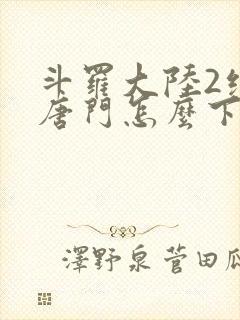 斗羅大陸2
唐門怎麼下
澤野泉 菅田